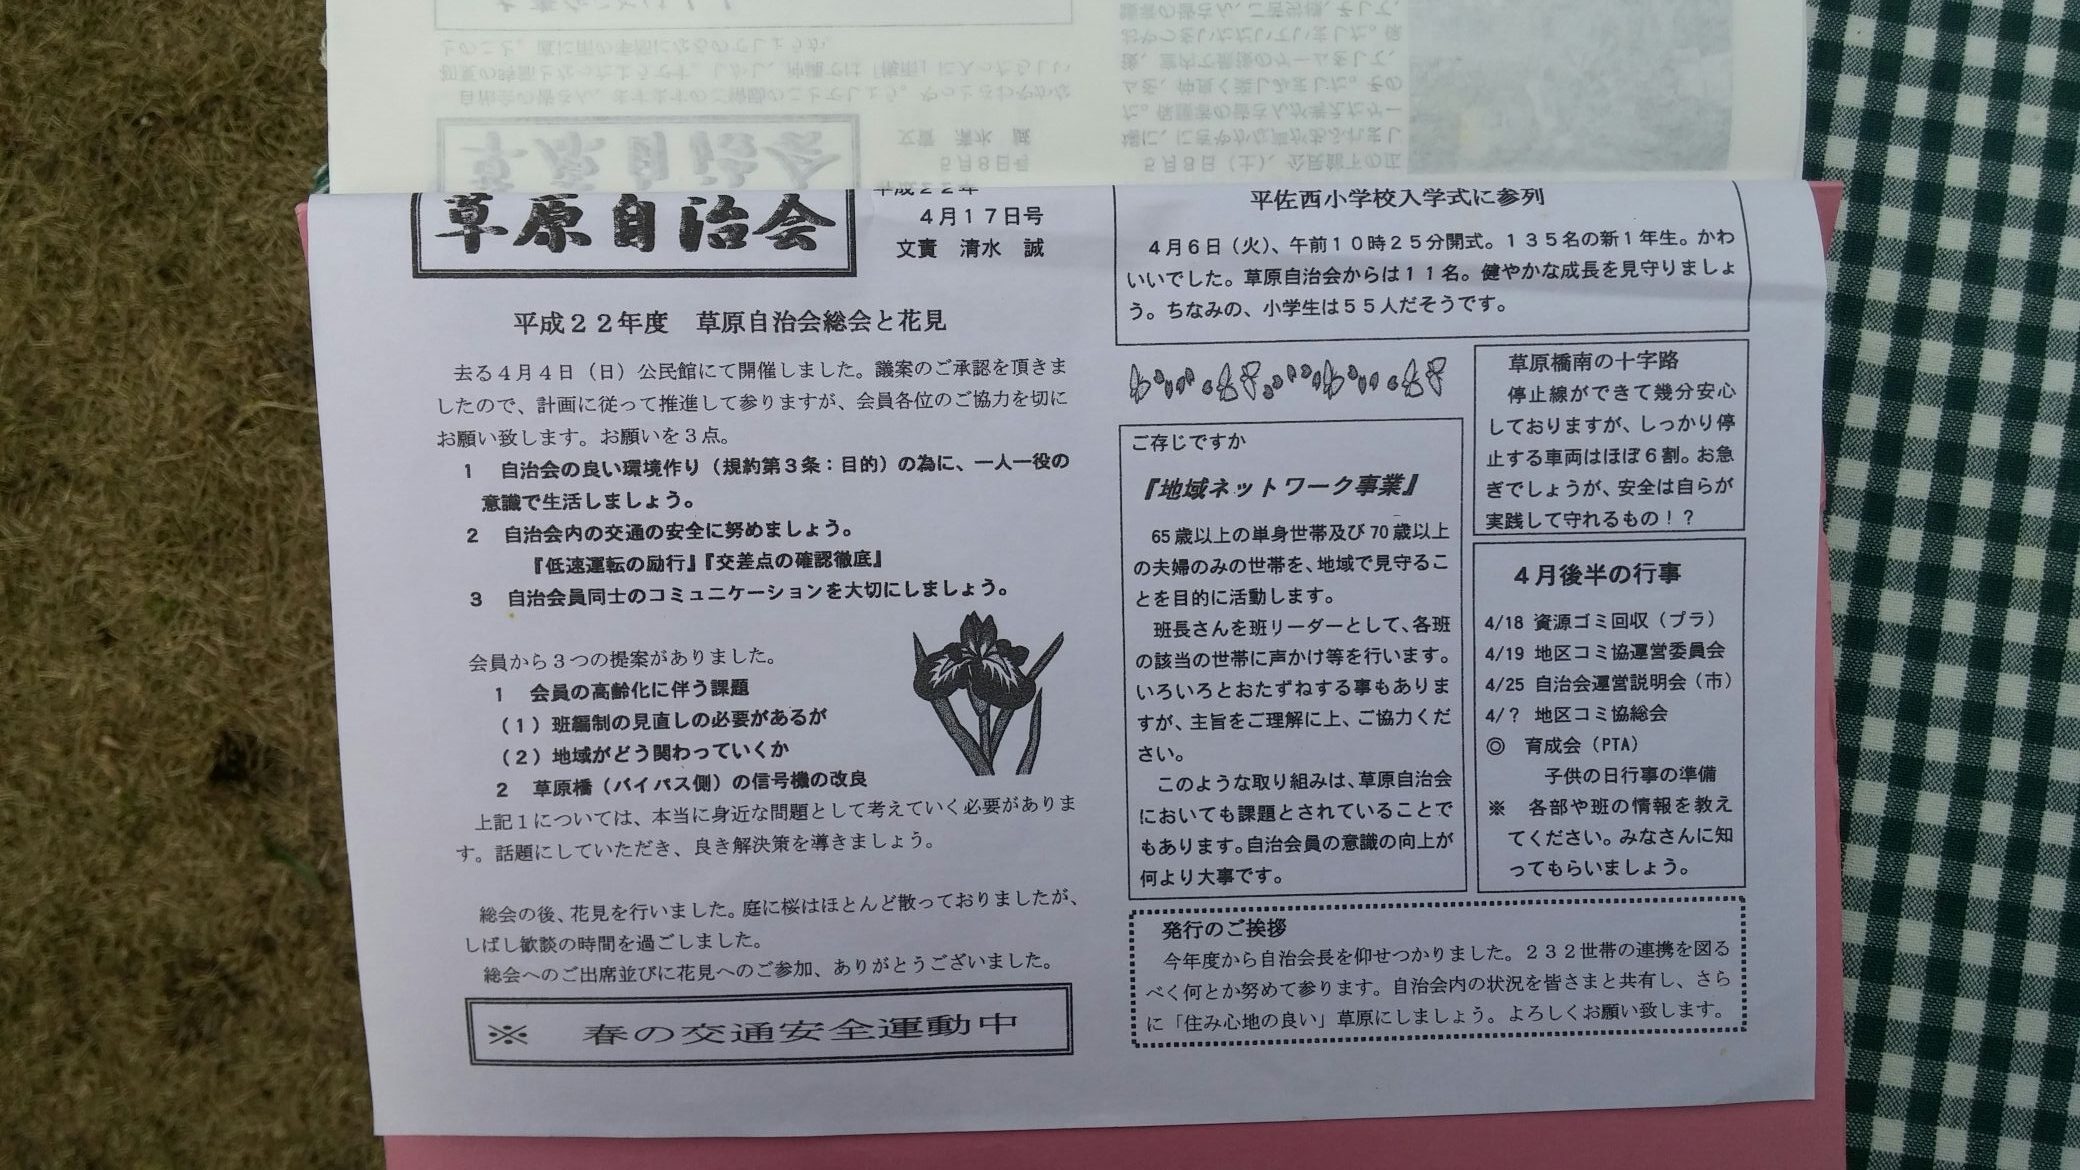 草原自治会
平成２２年
４月１７日号
文責　清水　誠
平成２２年度　草原自治会総会と花見
去る４月４日（日）公民館にて開催しました。議案のご承認を頂きま
したので、計画に従って推進して参りますが、会員各位のご協力を切に
お願い致します。お願いを３点。
１　自治会の良い環境作り（規約第３条：目的）の為に、一人一役の
意識で生活しましょう。
２　自治会内の交通の安全に努めましょう。
『低速運転の励行』『交差点の確認徹底』
３　自治会員同士のコミュニケーションを大切にしましょう。
会員から３つの提案がありました。
１　会員の高齢化に伴う課題
（１）班編制の見直しの必要があるが
（２）地域がどう関わっていくか
２　草原橋（バイパス側）の信号機の改良
上記１については、本当に身近な問題として考えていく必要がありま
す。話題にしていただき、良き解決策を導きましょう。
総会の後、花見を行いました。庭に桜はほとんど散っておりましたが、
しばし歓談の時間を過ごしました。
総会へのご出席並びに花見へのご参加、ありがとうございました。
※　春の交通安全運動中
平佐西小学校入学式に参列
４月６日（火）、午前１０時２５分開式。１３５名の新１年生。かわ
いいでした。草原自治会からは１１名。健やかな成長を見守りましょ
う。ちなみの、小学生は５５人だそうです。
ご存じですか
『地域ネットワーク事業』
65歳以上の単身世帯及び70歳以上
の夫婦のみの世帯を、地域で見守るこ
とを目的に活動します。
班長さんを班リーダーとして、各班
の該当の世帯に声かけ等を行います。
いろいろとおたずねする事もありま
すが、主旨をご理解に上、ご協力くだ
さい。
このような取り組みは、草原自治会
においても課題とされていることで
もあります。自治会員の意識の向上が
何より大事です。
草原橋南の十字路
停止線ができて幾分安心
しておりますが、しっかり停
止する車両はほぼ６割。お急
ぎでしょうが、安全は自らが
実践して守れるもの！？
４月後半の行事
4/18 資源ゴミ回収（プラ）
4/19 地区コミ協運営委員会
4/25 自治会運営説明会（市）
4/？ 地区コミ協総会
◎　育成会（PTA）
子供の日行事の準備
※　各部や班の情報を教え
てください。みなさんに知
ってもらいましょう。
発行のご挨拶
今年度から自治会長を仰せつかりました。２３２世帯の連携を図る
べく何とか努めて参ります。自治会内の状況を皆さまと共有し、さら
に「住み心地の良い」草原にしましょう。よろしくお願い致します。